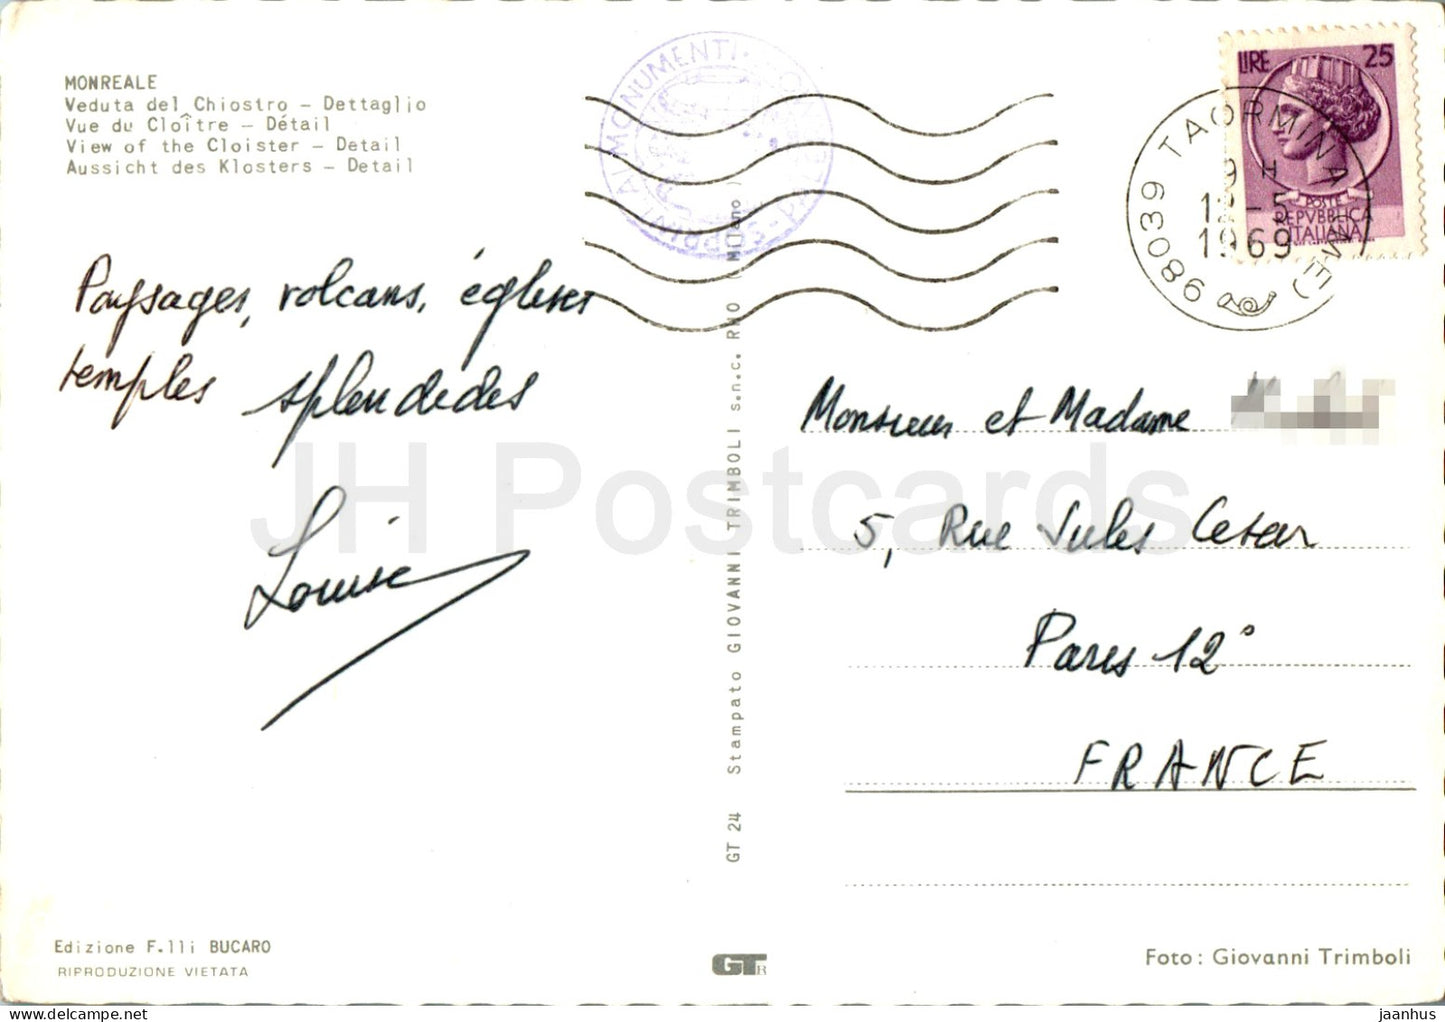 MONREALE
Veduta del Chiostro – Dettaglio
Vue du Cloître – Détail
View of the Cloister – Detail
Aussicht des Klosters – Detail
AI MONUMENTI
LIRE 25
POSTE
REPVBBLICA
ITALIANA
98039 TAORMINA (ME)
9 H
12-5
1969
Paysages, volcans, églises
temples splendides
Louise
Monsieur et Madame
5, Rue Jules Cesar
Paris 12°
FRANCE
GT 24 Stampato GIOVANNI TRIMBOLI s.n.c. RHO (Milano)
JH Postcards
Edizione F.lli BUCARO
RIPRODUZIONE VIETATA
GTR
Foto: Giovanni Trimboli
jaanhus